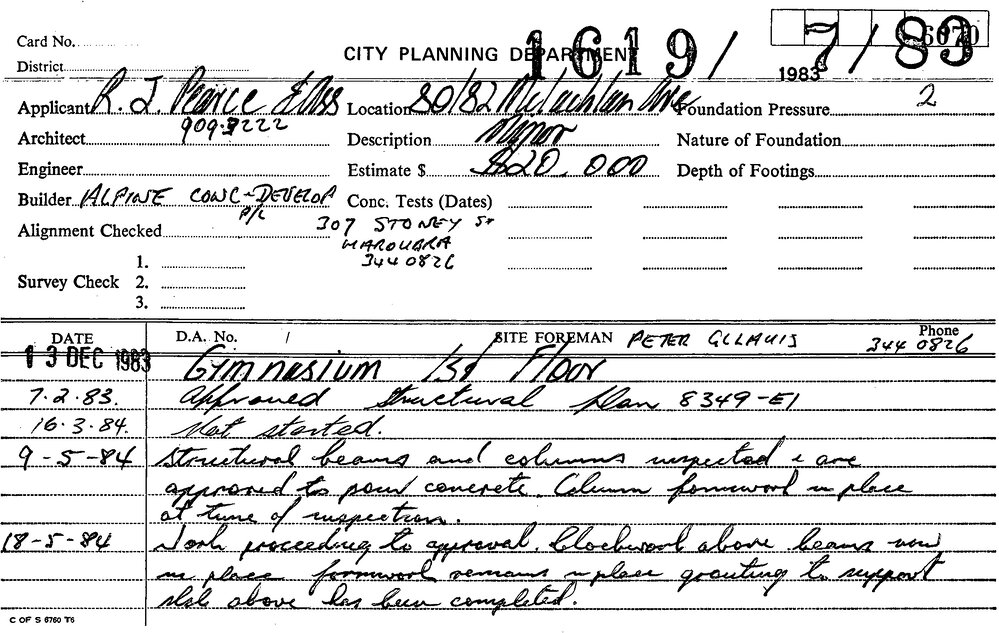 6070
Card No.
CITY PLANNING DEPARTMENT 1619/ 7/83
District 1983
Applicant R. J. Pearce & Ass Location 80/82 McLachlan Ave Foundation Pressure 2
909.3222
Architect Description Minor Nature of Foundation
Engineer Estimate $ $20,000 Depth of Footings
Builder ALPINE CONC-DEVELOP Conc. Tests (Dates)
P/L
Alignment Checked 307 STONEY St
MAROUBRA
344 0826
1.
Survey Check 2.
3.
DATE D.A. No. / SITE FOREMAN PETER Phone
344 0826
13 DEC 1983 Gymnasium 1st Floor
7.2.83. Approved Structural plan 8349-E1
16.3.84. Not started.
9-5-84 Structural beams and columns inspected & are
approved to pour concrete. Column formwork in place
at time of inspection.
18-5-84 Work proceeding to approval. Blockwork above beams now
in place formwork remains in place grouting to support
slab above has been completed.
C OF S 6760 T6